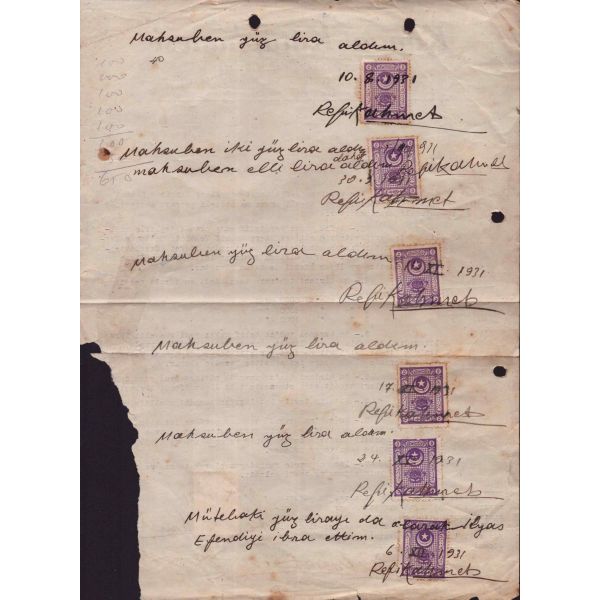 Mahsuben yüz lira aldım.
10.8.1931
Refik Ahmet
Mahsuben iki yüz lira aldım
mahsuben elli lira daha aldım Refik Ahmet
30.
Refik Ahmet
Mahsuben yüz lira aldım
1931
Refik Ahmet
Mahsuben yüz lira aldım.
17. 1931
Refik Ahmet
Mahsuben yüz lira aldım.
24. 1931
Refik Ahmet
Mütebaki yüz lirayı da alarak İlyas
Efendiyi ibra ettim.
6. XII. 1931
Refik Ahmet